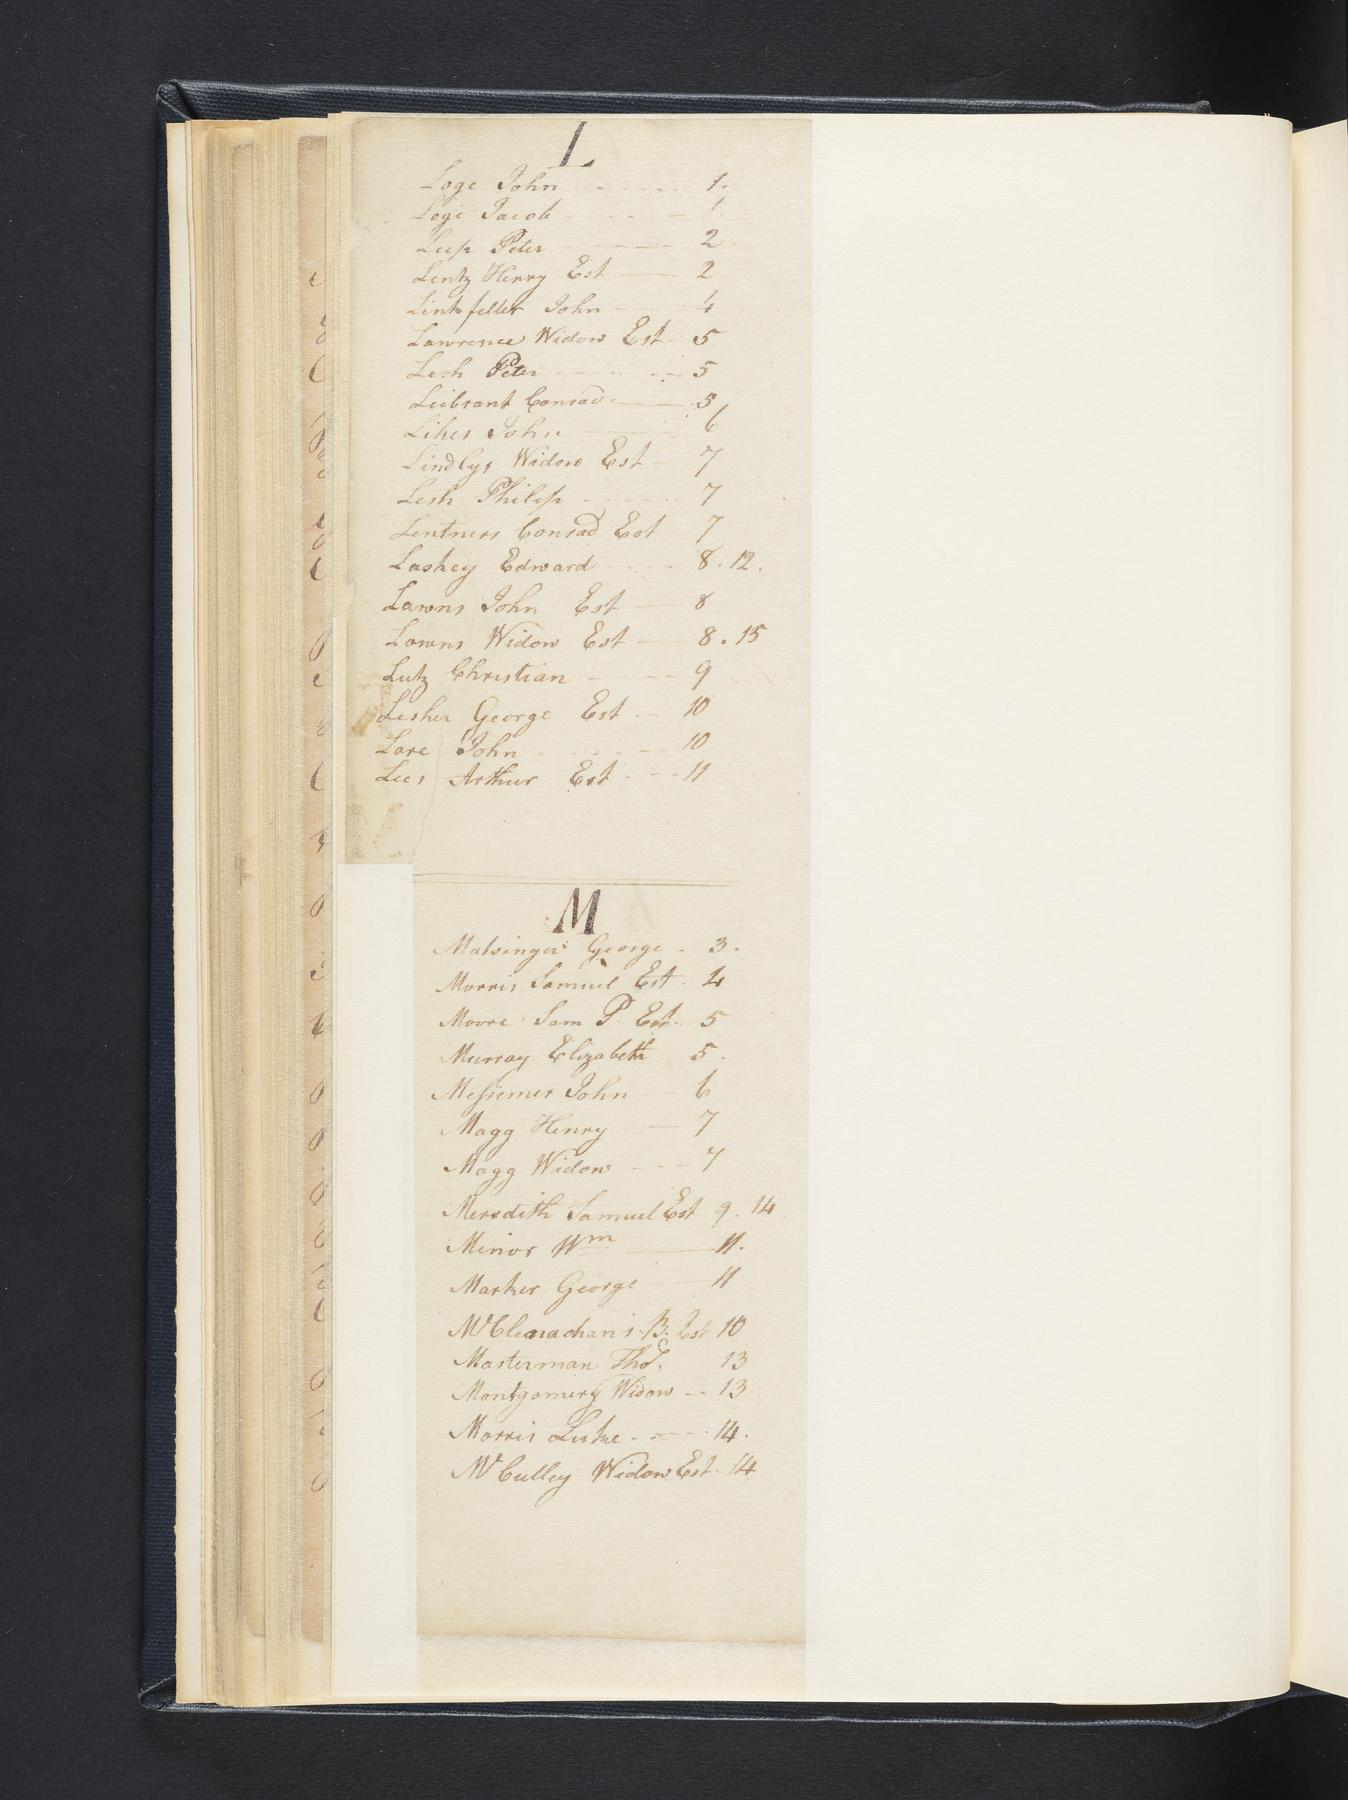 L
Loge John 1.
Loge Jacob 1
Leep Peter 2
Lentz Henry Est 2
Lintsfeller John 4
Lawrence Widow Est 5
Lesh Peter 5
Leibrant Conrad 5
Likes John 6
Lindlys Widow Est 7
Lesh Philip 7
Lentners Conrad Est 7
Laskey Edward 8. 12.
Lawns John Est 8
Lowns Widow Est 8. 15
Lutz Christian 9
Lesher George Est 10
Lare John 10
Lees Arthur Est 11
M
Matsinger George 3.
Morris Samuel Est 4
Moore Sam P Est 5
Murray Elizabeth 5.
Messemer John 6
Magg Henry 7
Magg Widow 7
Meredith Samuel Est 9. 14
Minor Wm 11.
Marker George 11
McClenachans B. Est 10
Masterman Thos. 13
Montgomery Widow 13
Morris Luke 14.
McCulley Widow Est. 14